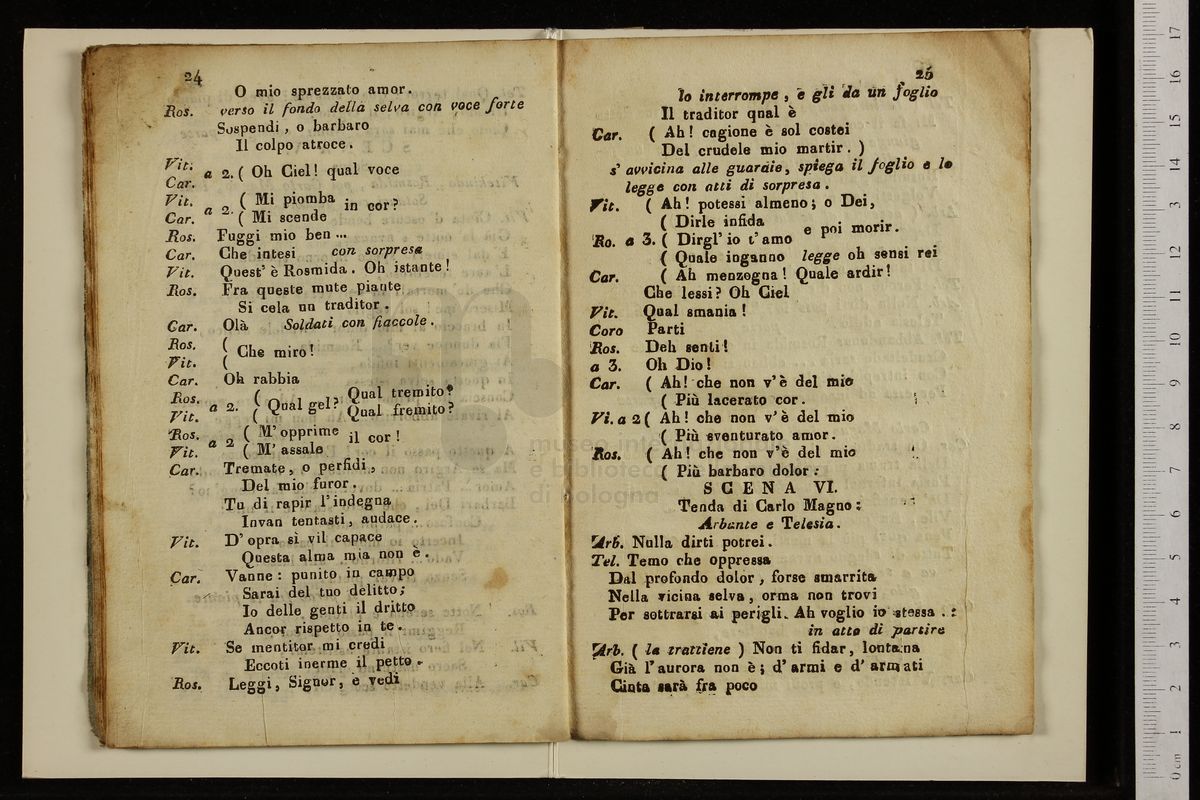 24
O mio sprezzato amor.
Ros. verso il fondo della selva con voce forte
Sospendi, o barbaro
Il colpo atroce.
Vit.
Car. a 2. ( Oh Ciel! qual voce
Vit. a 2. ( Mi piomba in cor?
Car. ( Mi scende
Ros. Fuggi mio ben ...
Car. Che intesi con sorpresa
Vit. Quest' è Rosmida. Oh istante!
Ros. Fra queste mute piante
Si cela un traditor.
Car. Olà Soldati con fiaccole.
Ros. (
Vit. ( Che miro!
Car. Oh rabbia
Ros. a 2. ( Qual gel? Qual tremito?
Vit. ( Qual fremito?
Ros. a 2 ( M' opprime il cor!
Vit. ( M' assale
Car. Tremate, o perfidi,
Del mio furor.
Tu di rapir l'indegna
Invan tentasti, audace.
Vit. D' opra sì vil capace
Questa alma mia non è.
Car. Vanne: punito in campo
Sarai del tuo delitto;
Io delle genti il dritto
Ancor rispetto in te.
Vit. Se mentitor mi credi
Eccoti inerme il petto.
Ros. Leggi, Signor, e vedi
25
lo interrompe, e gli da un foglio
Il traditor qual è
Car. ( Ah! cagione è sol costei
Del crudele mio martir. )
s' avvicina alle guardie, spiega il foglio e lo
legge con atti di sorpresa.
Vit. ( Ah! potessi almeno; o Dei,
( Dirle infida e poi morir.
Ro. a 3. ( Dirgl' io t' amo
( Quale inganno legge oh sensi rei
Car. ( Ah menzogna! Quale ardir!
Che lessi? Oh Ciel
Vit. Qual smania!
Coro Parti
Ros. Deh senti!
a 3. Oh Dio!
Car. ( Ah! che non v'è del mio
( Più lacerato cor.
Vi. a 2 ( Ah! che non v'è del mio
( Più sventurato amor.
Ros. ( Ah! che non v'è del mio
( Più barbaro dolor:
SCENA VI.
Tenda di Carlo Magno:
Arbante e Telesia.
Arb. Nulla dirti potrei.
Tel. Temo che oppressa
Dal profondo dolor, forse smarrita
Nella vicina selva, orma non trovi
Per sottrarsi ai perigli. Ah voglio io stessa . :
in atto di partire
Arb. ( la trattiene ) Non ti fidar, lontana
Già l'aurora non è; d' armi e d' armati
Cinta sarà fra poco
museo internazionale
e biblioteca
di bologna
0 cm 1 2 3 4 5 6 7 8 9 10 11 12 13 14 15 16 17